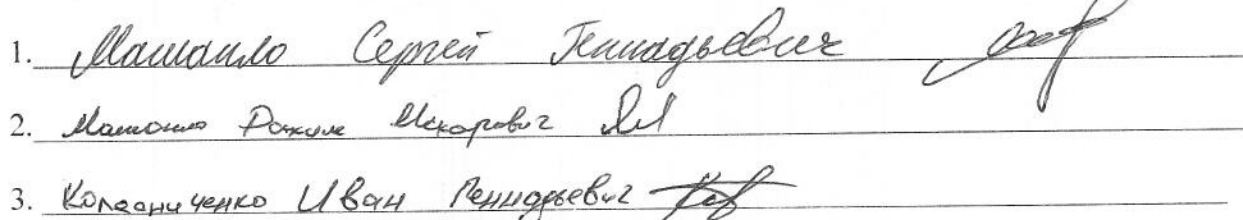 1. Машаило Сергей Геннадьевич
2. Машаило Рахим Макарович
3. Колесниченко Иван Геннадьевич